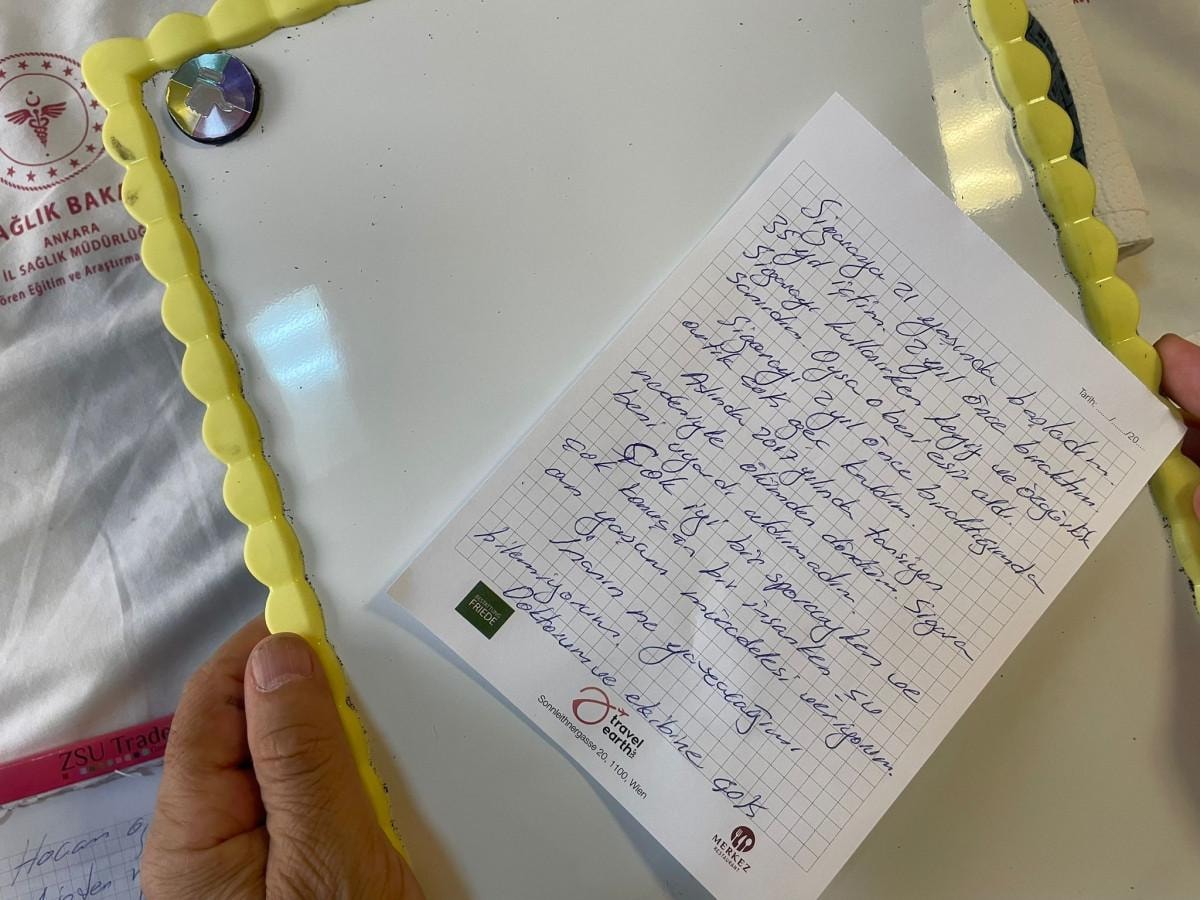 SAĞLIK BAKA
ANKARA
İL SAĞLIK MÜDÜRLÜĞ
ören Eğitim ve Araştırma
ZSU Trade
Hocam
Tarih: ...../...../20.....
Sigaraya 21 yaşında başladım.
35 yıl içtim. 2 yıl önce bıraktım.
Sigarayı kullanırken keyif ve özgürlük
sandım. Oysa o beni esir aldı.
Sigarayı 2 yıl önce bıraktığımda
artık çok geç kaldım.
Aslında 2017 yılında tansiyon
nedeniyle ölümden döndüm. Sigara
beni uyardı aldırmadım.
Çok iyi bir sporcuyken ve
çok konuşan bir insanken şu
an yaşam mücadelesi veriyorum.
İnanın ne yapacağımı
bilemiyorum.
Doktorum ve ekibine çok
BESTATTUNG
FRIEDE
travel
earth
Sonnleithnergasse 20, 1100, Wien
MERKEZ
RESTAURANT